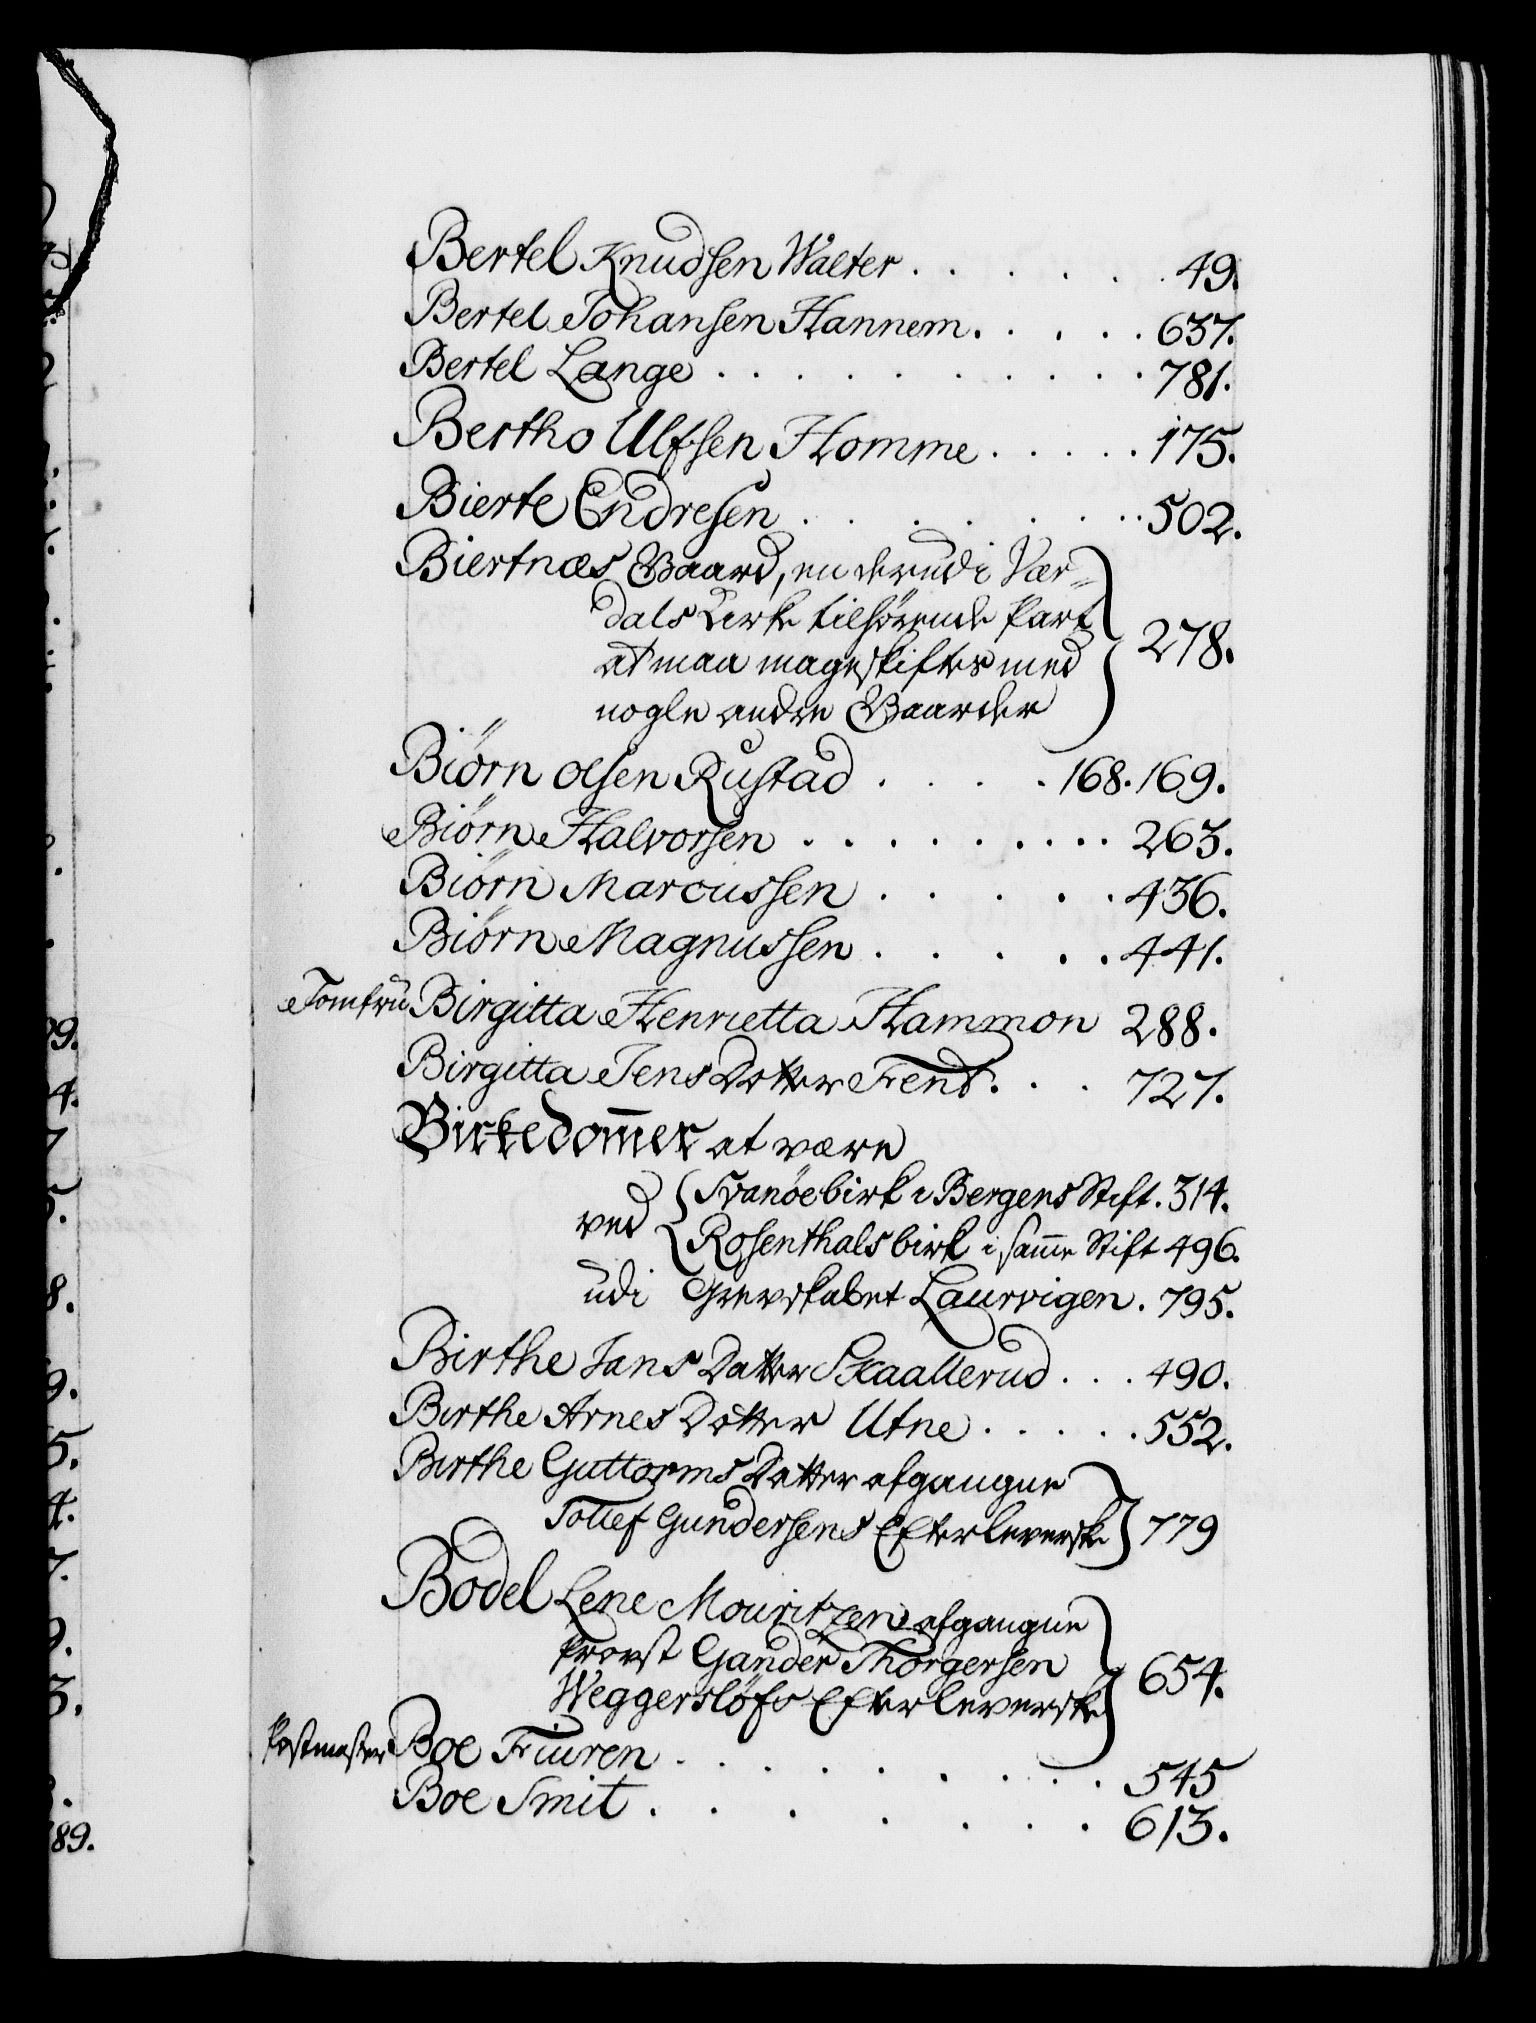 Bertel Knudsen Walter . . . . . . 49.
Bertel Johansen Hannem . . . . . 637.
Bertel Lange . . . . . . . . . . 781.
Bertho Ulfsen Homme . . . . . 175.
Bierte Endresen . . . . . . . . 502.
Biertnæs Gaard, en derudi Vær-
dals Kirke tilhørende Part
at maa mageskiftes med
nogle andre Gaarder } 278.
Biørn Olsen Rustad . . . . 168. 169.
Biørn Halvorsen . . . . . . . . . 263.
Biørn Marcussen . . . . . 436.
Biørn Magnussen . . . . . 441.
Jomfru Birgitta Henrietta Hammon 288.
Birgitta Jens Datter Fend . . . 727.
Birkedom̅er at være
ved { Svanöebirk i Bergens Stift. 314.
Rosenthals birk i sam̅e Stift 496.
udi Grevskabet Laurvigen . 795.
Birthe Jans Datter Skaallerud . . . 490.
Birthe Arnes Datter Utne . . . . . 552.
Birthe Guttorms Datter afgangne
Tollef Gundersens Efterleverske } 779
Bodel Lene Mouritzen afgangne
Provst Gander Thorgersen
Weggersløfs Efterleverske } 654.
Postmester Boe Friuren . . . . . . . . . 545
Boe Smit . . . . . . . 613.
9.
4.
7.
5.
8.
9.
5.
4.
7.
9.
3.
89.